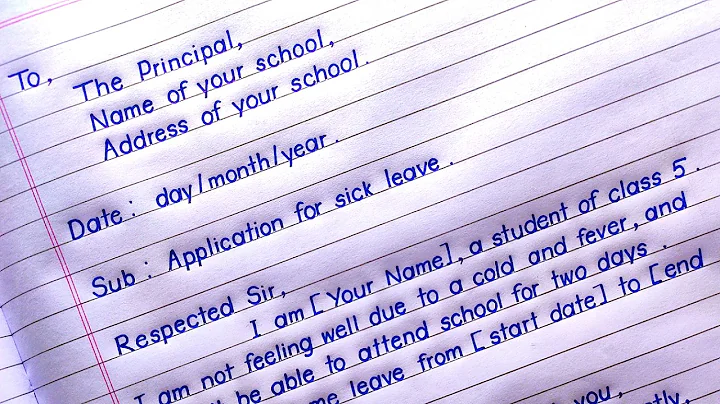 To,
The Principal,
Name of your school,
Address of your school.
Date: day/month/year.
Sub: Application for sick leave.
Respected Sir,
I am [Your Name], a student of class 5.
I am not feeling well due to a cold and fever, and
be able to attend school for two days.
leave from [start date] to [end
you,